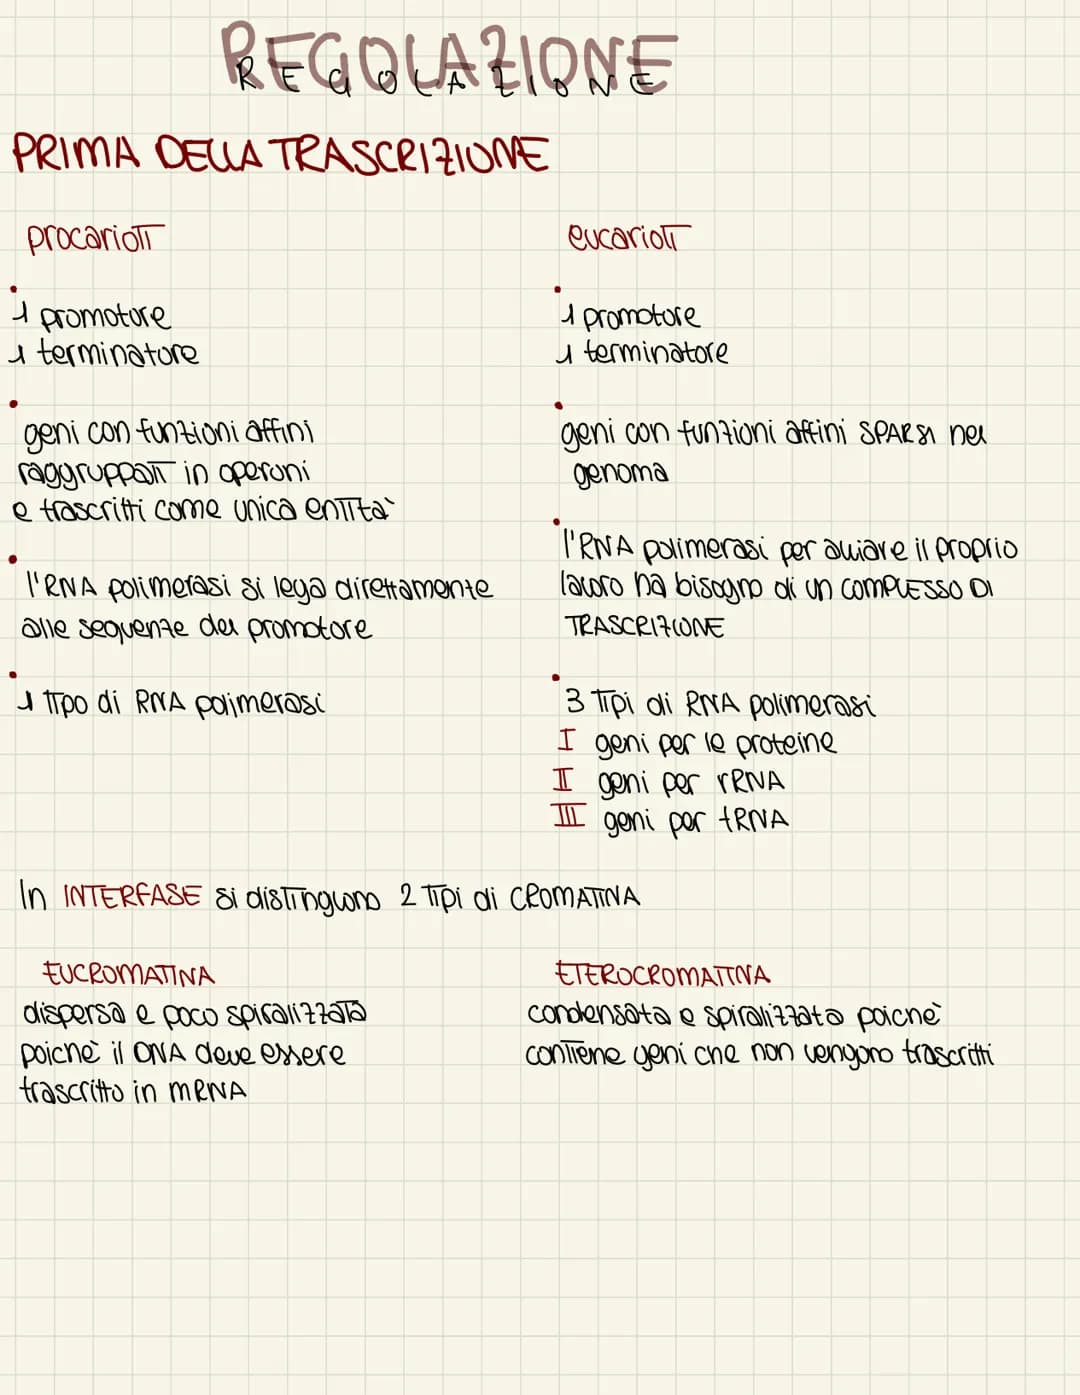 REGOLAZIONE
REGOLAZIONE
PRIMA DELLA TRASCRIZIONE
procarioti
• 1 promotore
1 terminatore
• geni con funzioni affini
raggruppati in operoni
e trascritti come unica entità
• l'RNA polimerasi si lega direttamente
alle sequenze del promotore
• 1 tipo di RNA polimerasi
eucarioti
• 1 promotore
1 terminatore
• geni con funzioni affini SPARSI nel
genoma
• l'RNA polimerasi per avviare il proprio
lavoro ha bisogno di un COMPLESSO DI
TRASCRIZIONE
• 3 tipi di RNA polimerasi
I geni per le proteine
II geni per rRNA
III geni per tRNA
In INTERFASE si distinguono 2 tipi di CROMATINA
EUCROMATINA
dispersa e poco spiralizzata
poichè il DNA deve essere
trascritto in mRNA
ETEROCROMATINA
condensata e spiralizzata poichè
contiene geni che non vengono trascritti